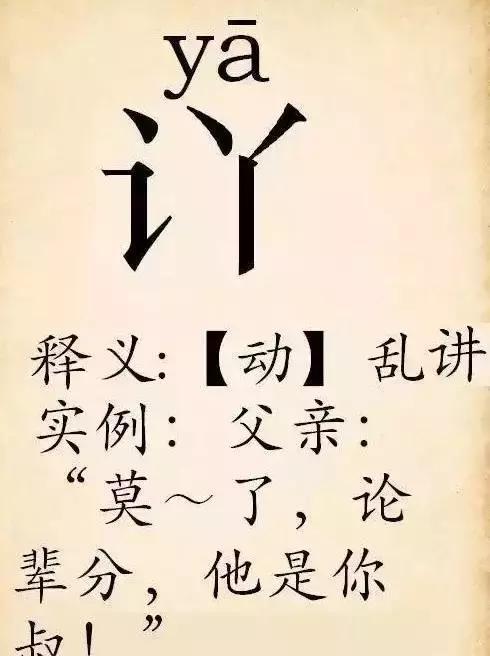 yā
讠丫
释义:【动】乱讲
实例：父亲：
“莫～了，论
辈分，他是你
叔！”